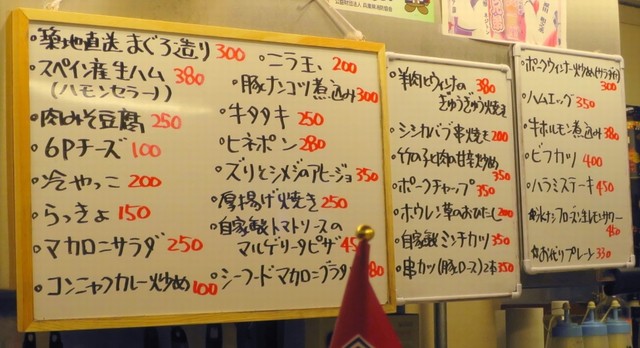 ・築地直送まぐろ造り 300
・スペイン産生ハム 380
(ハモンセラーノ)
・肉みそ豆腐 250
・6Pチーズ 100
・冷やっこ 200
・らっきょ 150
・マカロニサラダ 250
・コンニャクカレー炒め 100
・ニラ玉 200
・豚ナンコツ煮込み 300
・牛タタキ 250
・ヒネポン 280
・ズリとシメジのアヒージョ 350
・厚揚げ焼き 250
・自家製トマトソースの
マルゲリータピザ
・シーフードマカロニグラタン 380
・羊肉とウィンナの 380
ぎゅうぎゅう焼き
・シシカバブ串焼き 200
・竹の子と肉の甘辛炒め 350
・ポークチャップ 350
・ホウレン草のおひたし 200
・自家製ミンチカツ 350
・串カツ(豚ロース)2本 350
・ポークウィンナー炒め(サラダ付) 300
・ハムエッグ 350
・牛ホルモン煮込み 380
・ビフカツ 400
・ハラミステーキ 450
・氷ナシフローズン生レモンサワー 450
☆お代りプレーン 330